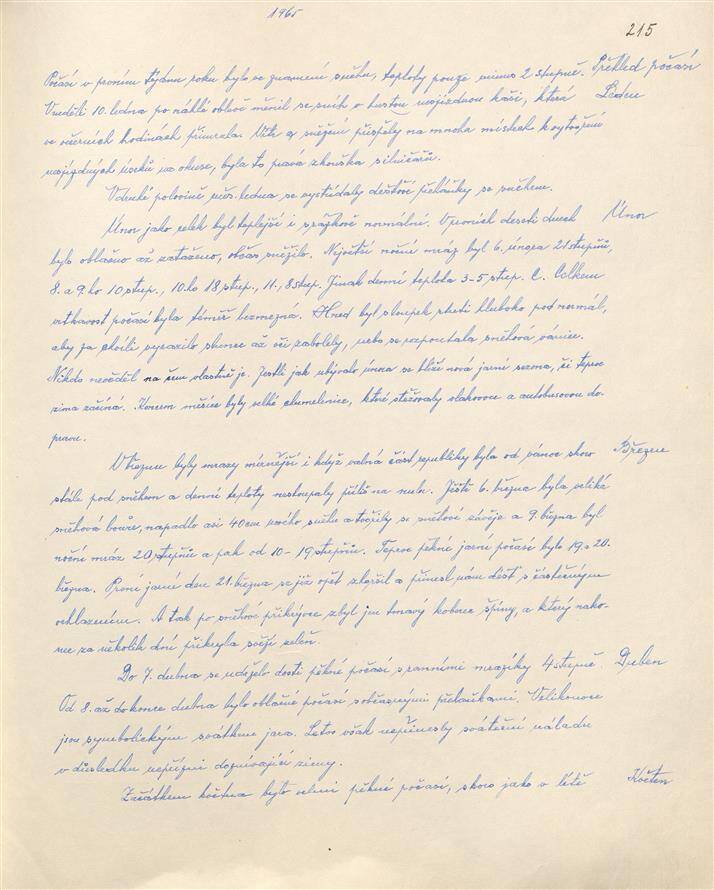 1965
215
Počasí v prvním týdnu roku bylo ve znamení sněhu, teploty pouze minus 2 stupně. Přehled počasí
V neděli 10. ledna po náhlé oblevě měnil se sníh v hustou nesjízdnou kaši, která Leden
ve večerních hodinách přimrzla. Vítr a sněžení přispěly na mnoha místech k vytvoření
nesjízdných úseků na okrese, byla to pravá zkouška silničářů.
V druhé polovině měs. ledna se vystřídaly dešťové přeháňky se sněhem.
Únor jako celek byl teplejší i srážkově normální. V prvních deseti dnech Únor
bylo oblačno až zataženo, občas sněžilo. Největší noční mráz byl 6. února 21 stupňů,
8. a 9. ho 10 stup., 10. ho 18 stup., 11., 8 stup. Jinak denní teplota 3-5 stup. C. Celkem
vrtkavost počasí byla téměř bezmezná. Hned byl sloupek rtuti hluboko pod normál,
aby za chvíli vyrazilo slunce až oči zabolely, nebo se rozpoutala sněhová vánice.
Nikdo nevěděl na čem vlastně je. Jestli jak ubývalo února se blíží nová jarní sezona, či teprve
zima začíná. Koncem měsíce byly velké chumelenice, které stěžovaly vlakovou a autobusovou do-
pravu.
V březnu byly mrazy mírnější i když valná část republiky byla od vánoc skoro Březen
stále pod sněhem a denní teploty nestoupaly příliš na nulu. Ještě 6. března byla veliká
sněhová bouře, napadlo asi 40 cm nového sněhu a tvořily se sněhové závěje a 9. března byl
noční mráz 20 stupňů a pak od 10 - 19 stupňů. Teprve pěkné jarní počasí bylo 19. a 20.
března. První jarní den 21. března se již opět zhoršil a přinesl nám déšť s částečným
ochlazením. A tak po sněhové přikrývce zbyl jen tmavý koberec špíny, a který nako-
nec za několik dní přikryla svěží zeleň.
Do 7. dubna se udrželo dosti pěkné počasí s ranními mrazíky 4 stupně. Duben
Od 8. až do konce dubna bylo oblačné počasí s občasnými přeháňkami. Velikonoce
jsou symbolickým svátkem jara. Letos však nepřinesly sváteční náladu
v důsledku nepřízni doznívající zimy.
Začátkem května bylo velmi pěkné počasí, skoro jako v létě Květen